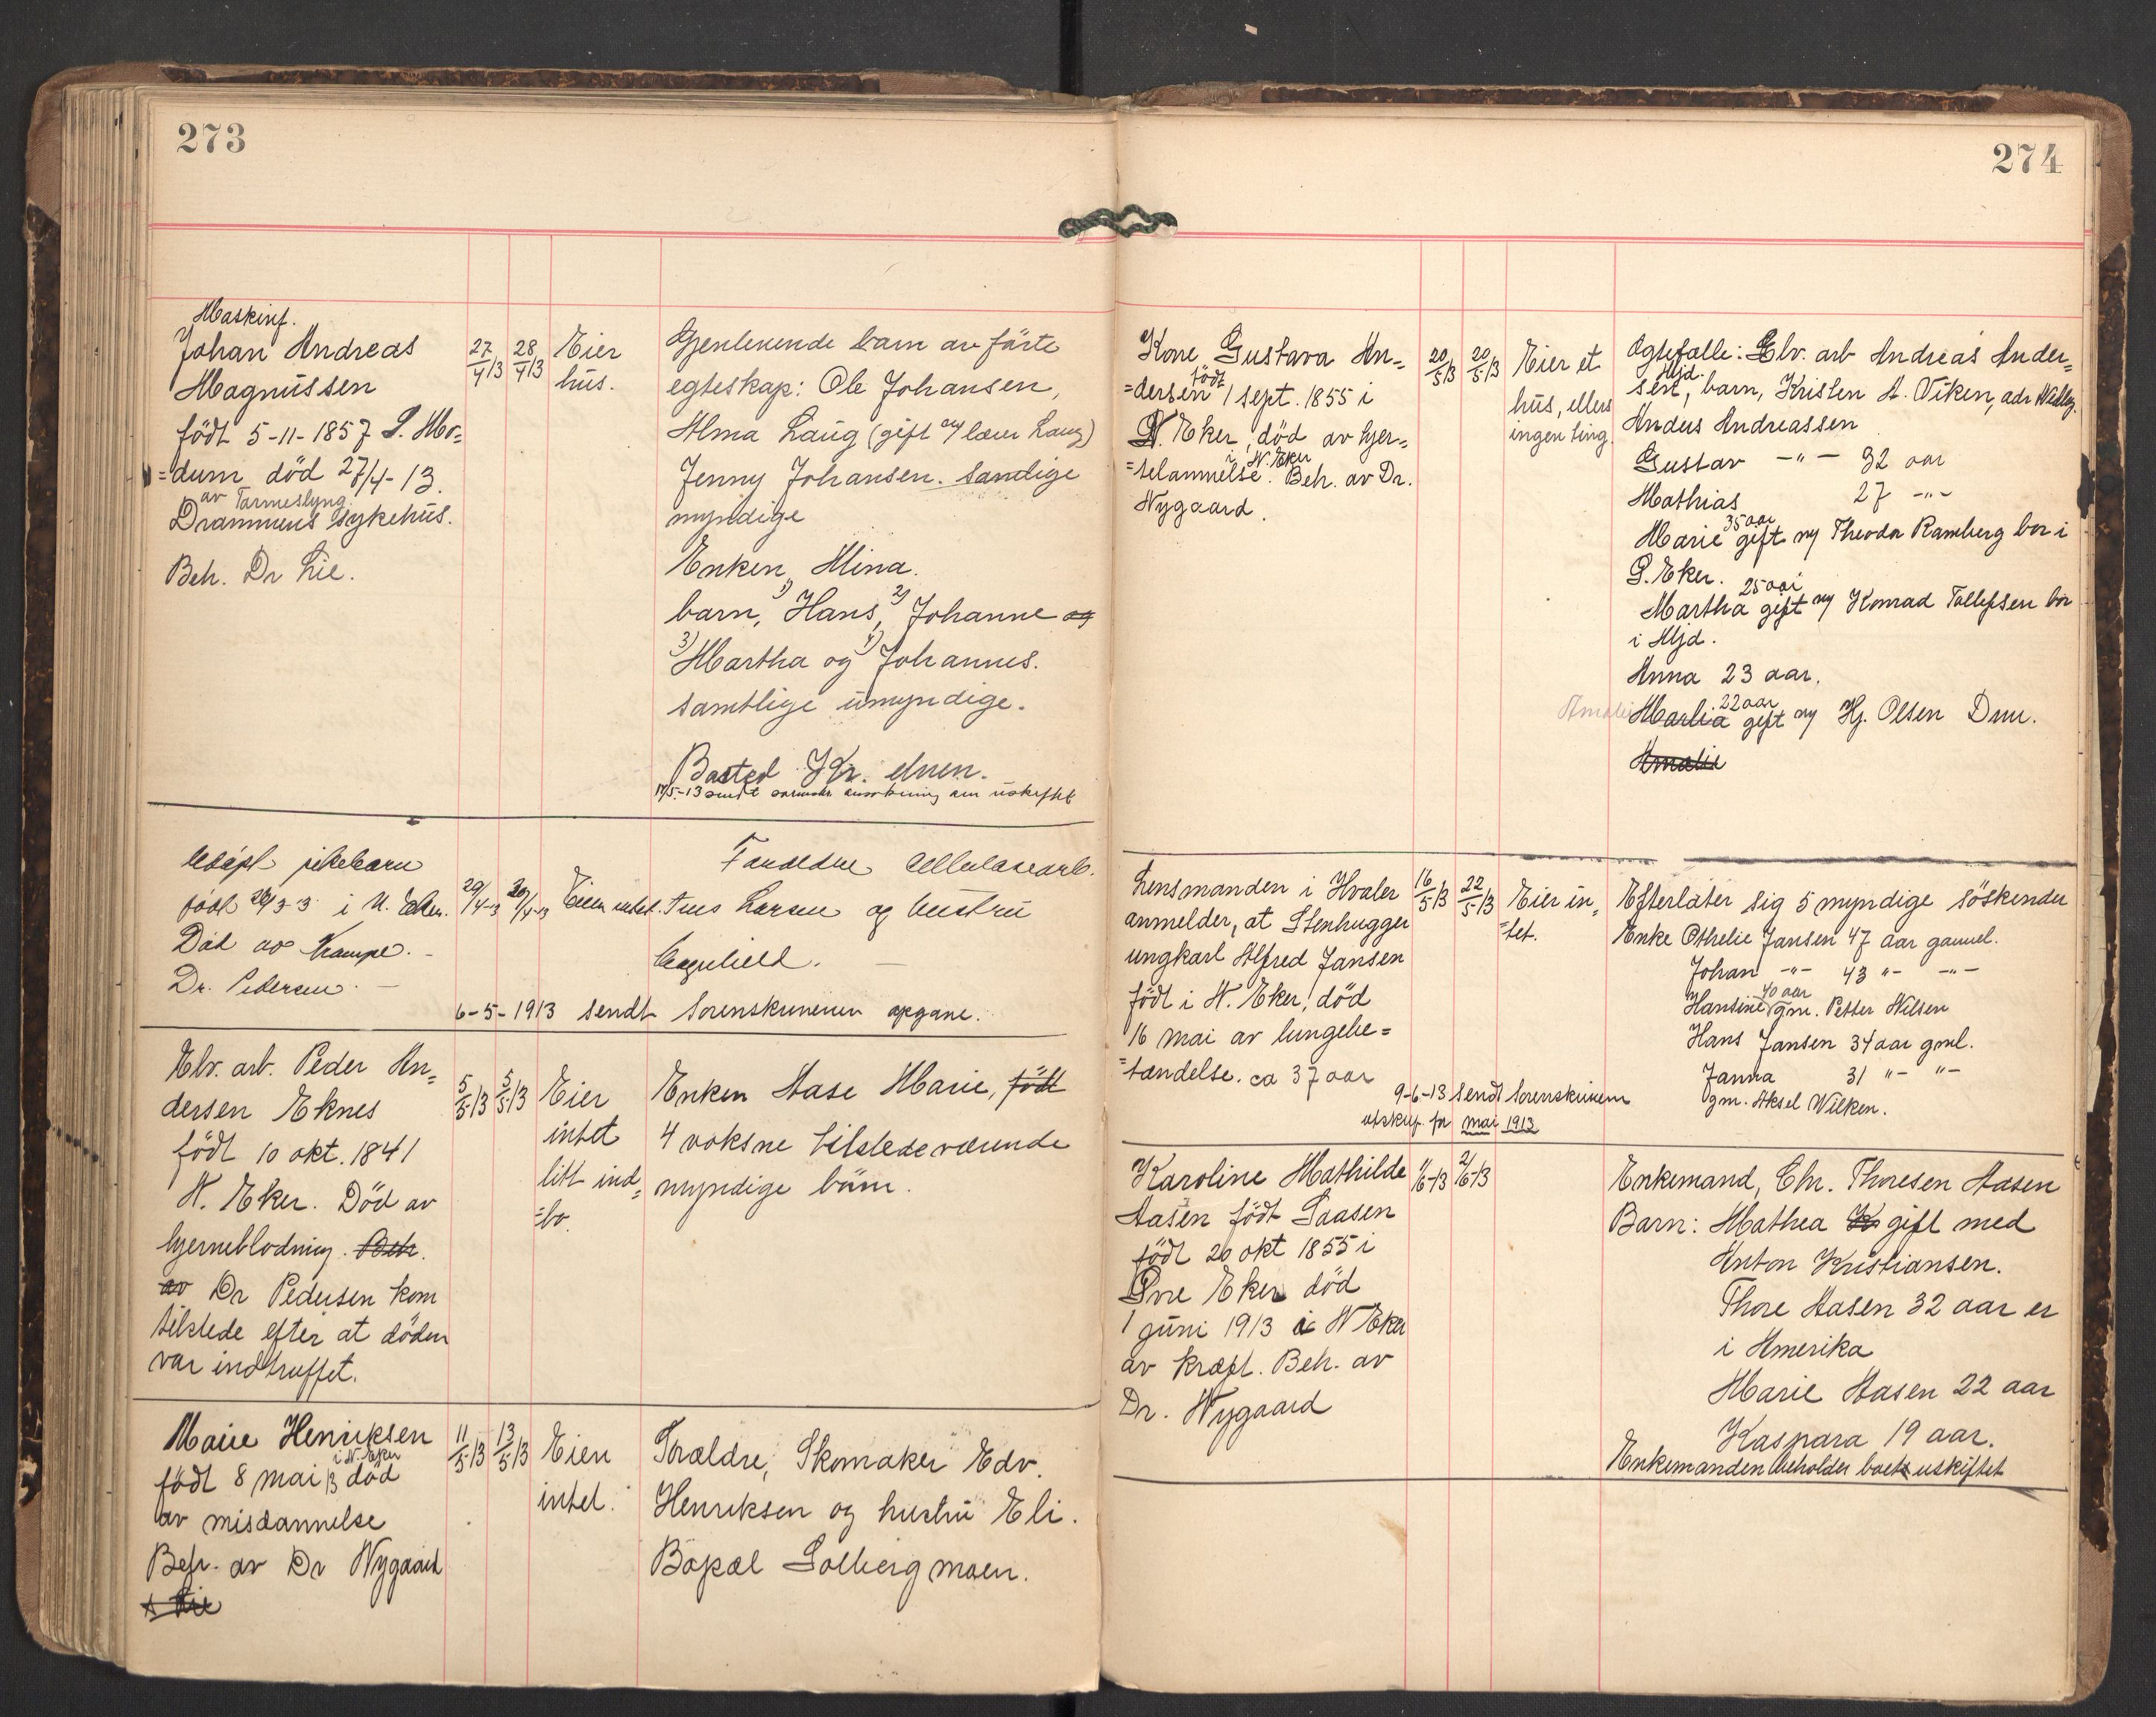 273
Maskinf.
Johan Andreas
Magnussen
født 5-11-1857 S. Mo-
=dum død 27/4-13.
av Tarmeslyng
Drammens sykehus.
Beh. Dr Lie.
27/4 13
28/4 13
Eier
hus.
Gjenlevende barn av första
egteskap: Ole Johansen,
Alma Laug (gift m/ lærer Laug)
Jenny Johansen. Samtlige
myndige
Enken, Mina.
barn, 1) Hans, 2) Johanne og
3) Martha og 4) Johannes.
samtlige umyndige.
Bosted Kr. elven.
17/5-13 sendt om uskiftet
Udøpt pikebarn
født 26/3-13 i N. Eker.
Död av Krampe. -
Dr. Pedersen. -
29/4-13
30/4-13
Eier intet.
Foreldre Cellulosearb.
Larsen og hustru
6-5-1913 sendt Sorenskriveren opgave.
Elv. arb. Peder An=
dersen Eknes
født 10 okt. 1841
N. Eker. Död av
hjerneblödning. Beh.
av Dr Pedersen kom
tilstede efter at döden
var indtruffet.
5/5 13
5/5 13
Eier
intet
litt ind=
=bo.
Enken Aase Marie, födt
4 voksne tilstedeværende
myndige börn.
Marie Henriksen
i N. Eker
född 8 mai 13 död
av misdannelse
Beh. av Dr Nygaard
11/5 13
13/5 13
Eier
intet.
Foræld​re, Skomaker Edv.
Henriksen og hustru Eli.
Bopæl Solbergmoen.
274
Kone Gustava An=
=dersen födt 1 sept. 1855 i
N. Eker, död av hjer=
i N. Eker
=telammelse. Beh. av Dr.
Nygaard.
20/5 13
20/5 13
Eier et
hus, ellers
ingen ting.
Ogtefælle: Elv. arb Andreas Ander=
Mjd.
sen, barn, Kristen A. Viken, adr
Anders Andreassen
Gustav -"- 32 aar
Mathias 27 -"-
35 aar
Marie gift m/ Theodor Ramberg bor i
S. Eker.
25 aar
Martha gift m/ Konrad Tollefsen bor
i Mjd.
Anna 23 aar.
22 aar
Amalie Marlia gift m/ Hj. Olsen Dmn.
Amalie
Lensmanden i Hvaler
anmelder, at Stenhugger
ungkarl Alfred Jansen
födt i N. Eker, död
16 mai av lungebe=
=tændelse. ca 37 aar
16/5 13
22/5 13
Eier in=
=tet.
Efterlater sig 5 myndige söskende
Enke Othelie Jansen 47 aar gammel.
Johan -"- 43 "- -"-
40 aar
Hansine gm. Petter Nilsen
Hans Jansen 34 aar gml.
Janna 31 "- "-
gm. Aksel Wilken.
9-6-13 Sendt Sorenskriveren
utskrift for mai 1913
Karoline Mathilde
Aasen födt Saasen
födt 20 okt 1855 i
Övre Eker död
1 juni 1913 i N Eker
av kræft. Beh. av
Dr. Nygaard
1/6-13
2/6-13
Enkemand, Chr. Thoresen Aasen
Barn: Mathea gift med
Anton Kristiansen.
Thore Aasen 32 aar er
i Amerika
Marie Aasen 22 aar
Kaspara 19 aar.
Enkemanden beholder boet uskiftet